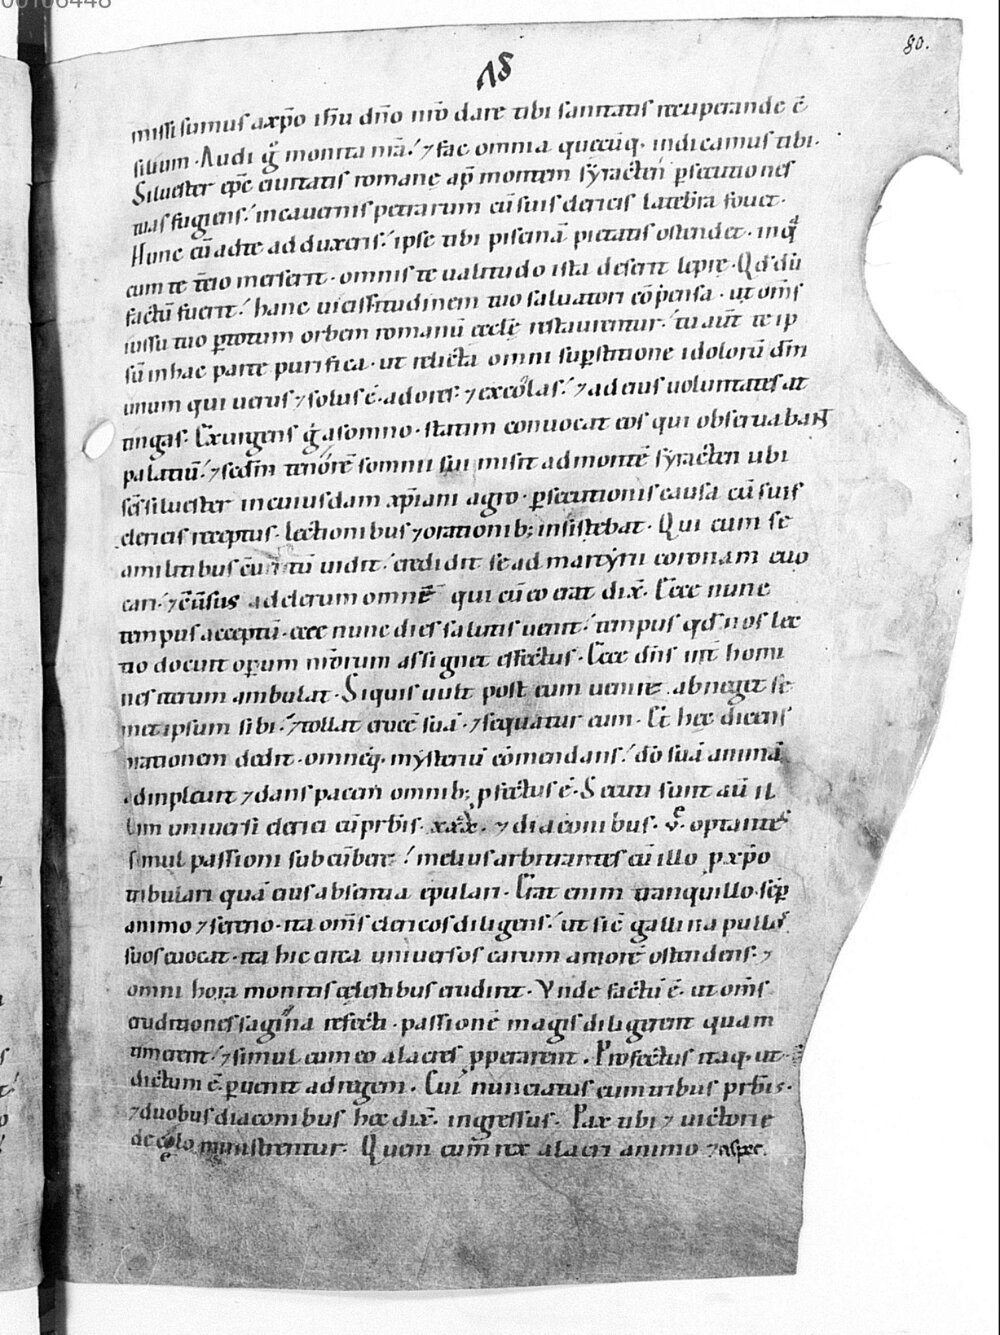 00106448
80.
missi sumus a xp̄o ih̄u dn̄o nr̄o dare tibi sanitatis recuperande c̄
silium. Audi g̊ monita mr̄a. ⁊ fac omnia quecūq. indicamus tibi.
Siluester ep̄c ciuitatis romane ap̄ montem syractен p̄secutiones
tuas fugiens. in cauernis petrarum cū suis clericis latebra fouet.
Hunc cū ad te adduxeris. ipse tibi piscinā pietatis ostendet. in qa
cum te t̄cio merserit. omnis te ualitudo ista deserit lepre. Qd dū
factū fuerit. hanc uicissitudinem tuo saluatori cōpensa. ut om̄s
iussu tuo p totum orbem romanū eccl̄e restaurentur. tu aūt te ip
sū in hac parte purifica. ut relicta omni sup̄stitione idolorū dm̄
unum qui uerus ⁊ solus ē. adores. ⁊ excolas. ⁊ ad eius uoluntates at
tingas. Exurgens g̊ a somno. statim conuocat eos qui obseruabant
palatiū. ⁊ scdm̄ tenorē somnii sui misit ad montē syracten ubi
sc̄s siluester in cuiusdam xp̄iani agro. p̄secutionis causa cū suis
clericis receptus. lectionibus ⁊ orationib; insistebat. Qui cum se
a militibus uidit. credidit se ad martyrii coronam euo
cari. ⁊ c̄uersus ad clerum omnē qui cū eo erat dix̄. Ecce nunc
tempus acceptū. ecce nunc dies salutis uenit. tempus qd nos lec
tio docuit op̄um nr̄orum assignet effectus. Ecce dn̄s int̄ homi
nes iterum ambulat. Siquis uult post eum uenire abneget se
met ipsum sibi. ⁊ tollat crucē suā. ⁊ sequatur eum. Et hec dicens
orationem dedit. omneq. mysteriū cōmendans. dō suā animā
adimpleuit ⁊ dans pacem omnib; p̄fectus ē. Secuti sunt aūt il
lum uniuersi clerici cū prb̄is. xxx. ⁊ diaconibus. v. optantes
simul passioni subcūbere. melius arbitrantes cū illo p xp̄o
tribulari quā eius absentia epulari. Erat enim tranquillo sēp
animo ⁊ sereno. ita om̄s clericos diligens. ut sic̄ gallina pullos
suos euocat. ita hic circa uniuersos carum amorē ostendens. ⁊
omni hora monitis celestibus erudiret. Vnde factū ē. ut om̄s
eruditionis sagina refecti. passionē magis diligerent quam
timerent. ⁊ simul cum eo alacres pperarent. Profectus itaq. ut
dictum ē. puenit ad regem. Cui nunciatus cum tribus prb̄is.
⁊ duobus diaconibus hec dix̄. ingressus. Pax tibi ⁊ uictorie
de celo ministrentur. Quem cum rex alacri animo ⁊ aspec.